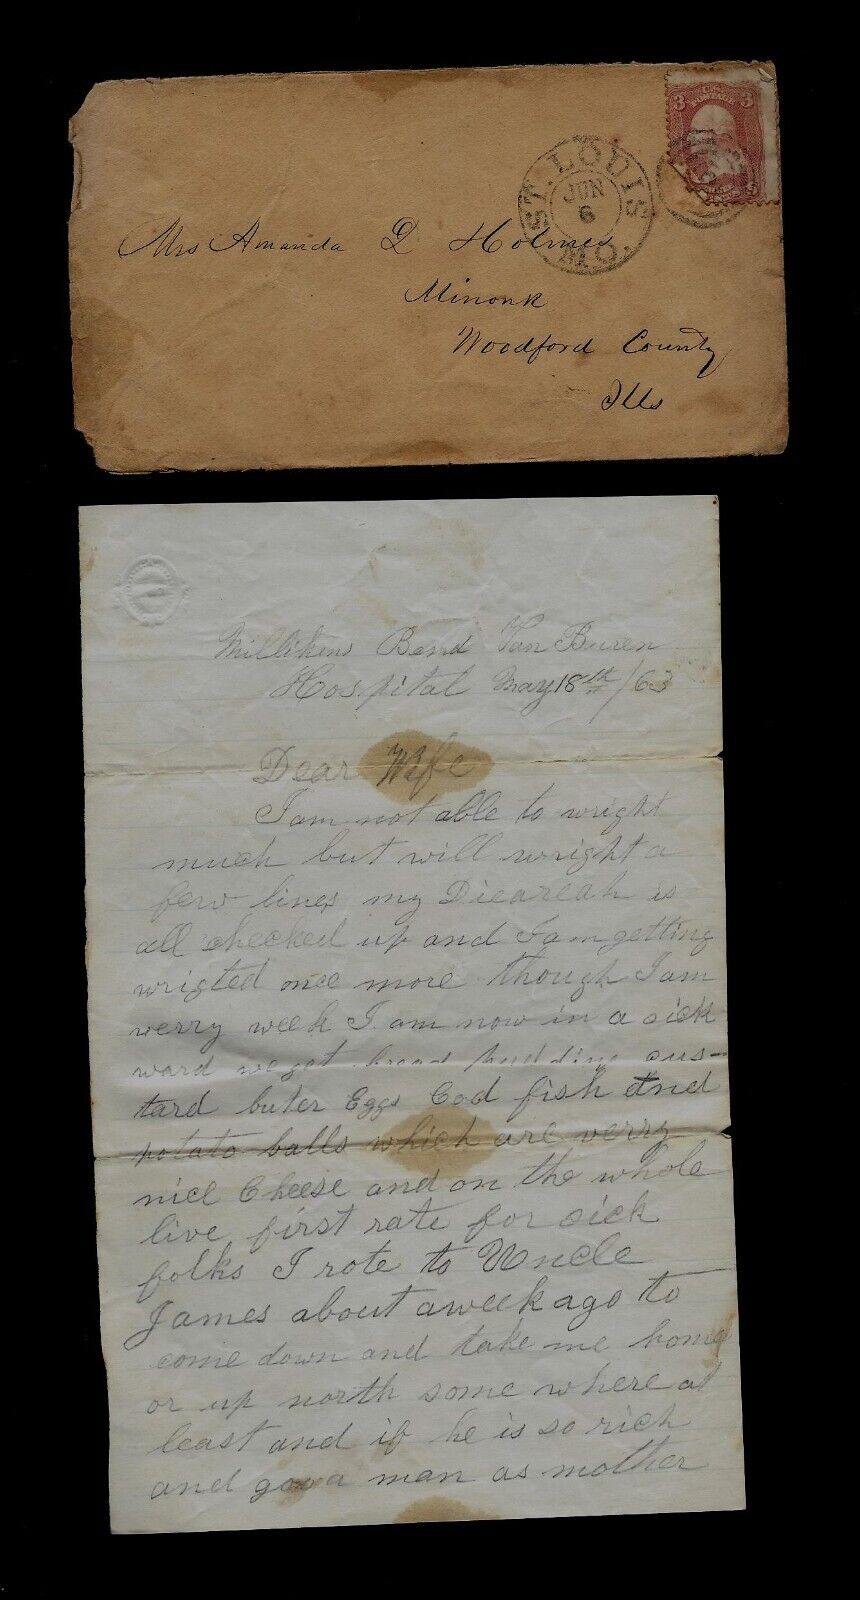 3 U.S. 3
POSTAGE
ST. LOUIS
JUN
6
MO.
Mrs Amanda D Holmes
Minonk
Woodford County
Ills
Millikens Bend Van Buren
Hospital May 18th/63
Dear Wife
I am not able to wright
much but will wright a
few lines my Diareah is
all checked up and I am getting
wrigted once more though I am
verry week I am now in a sick
ward we get bread pudding cus-
tard buter Eggs Cod fish and
potato balls which are verry
nice Cheese and on the whole
live first rate for sick
folks I rote to Uncle
James about a week ago to
come down and take me home
or up north some where at
least and if he is so rich
and good a man as mother